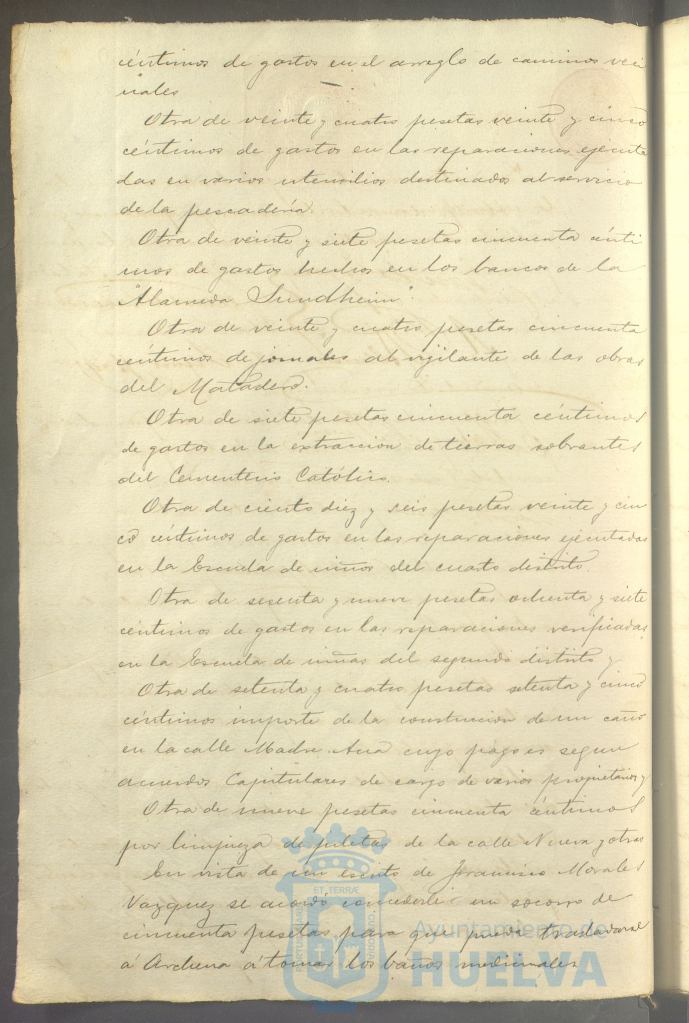 céntimos de gastos en el arreglo de caminos veci
nales
Otra de veinte y cuatro pesetas veinte y cinco
céntimos de gastos en las reparaciones ejecuta
das en varios utensilios destinados al servicio
de la pescadería
Otra de veinte y siete pesetas cincuenta cénti
mos de gastos hechos en los bancos de la
"Alameda Sundheim".
Otra de veinte y cuatro pesetas cincuenta
céntimos de jornales al vigilante de las obras
del Matadero.
Otra de siete pesetas cincuenta céntimos
de gastos en la extraccion de tierras sobrantes
del Cementerio Católico.
Otra de ciento diez y seis pesetas veinte y cin
co céntimos de gastos en las reparaciones ejecutadas
en la Escuela de niños del cuarto distrito.
Otra de sesenta y nueve pesetas ochenta y siete
céntimos de gastos en las reparaciones verificadas
en la Escuela de niñas del segundo distrito y
Otra de setenta y cuatro pesetas setenta y cinco
céntimos importe de la construccion de un caño
en la calle Madre Ana cuyo pago es segun
acuerdos Capitulares de cargo de varios propietarios y
Otra de nueve pesetas cincuenta céntimos
por limpieza de piletas de la calle Nueva y otras
En vista de un escrito de Francisco Morales
Vazquez se acordó concederle un socorro de
cincuenta pesetas para que pueda trasladarse
á Archena á tomar los baños medicinales
Ayuntamiento de
HUELVA